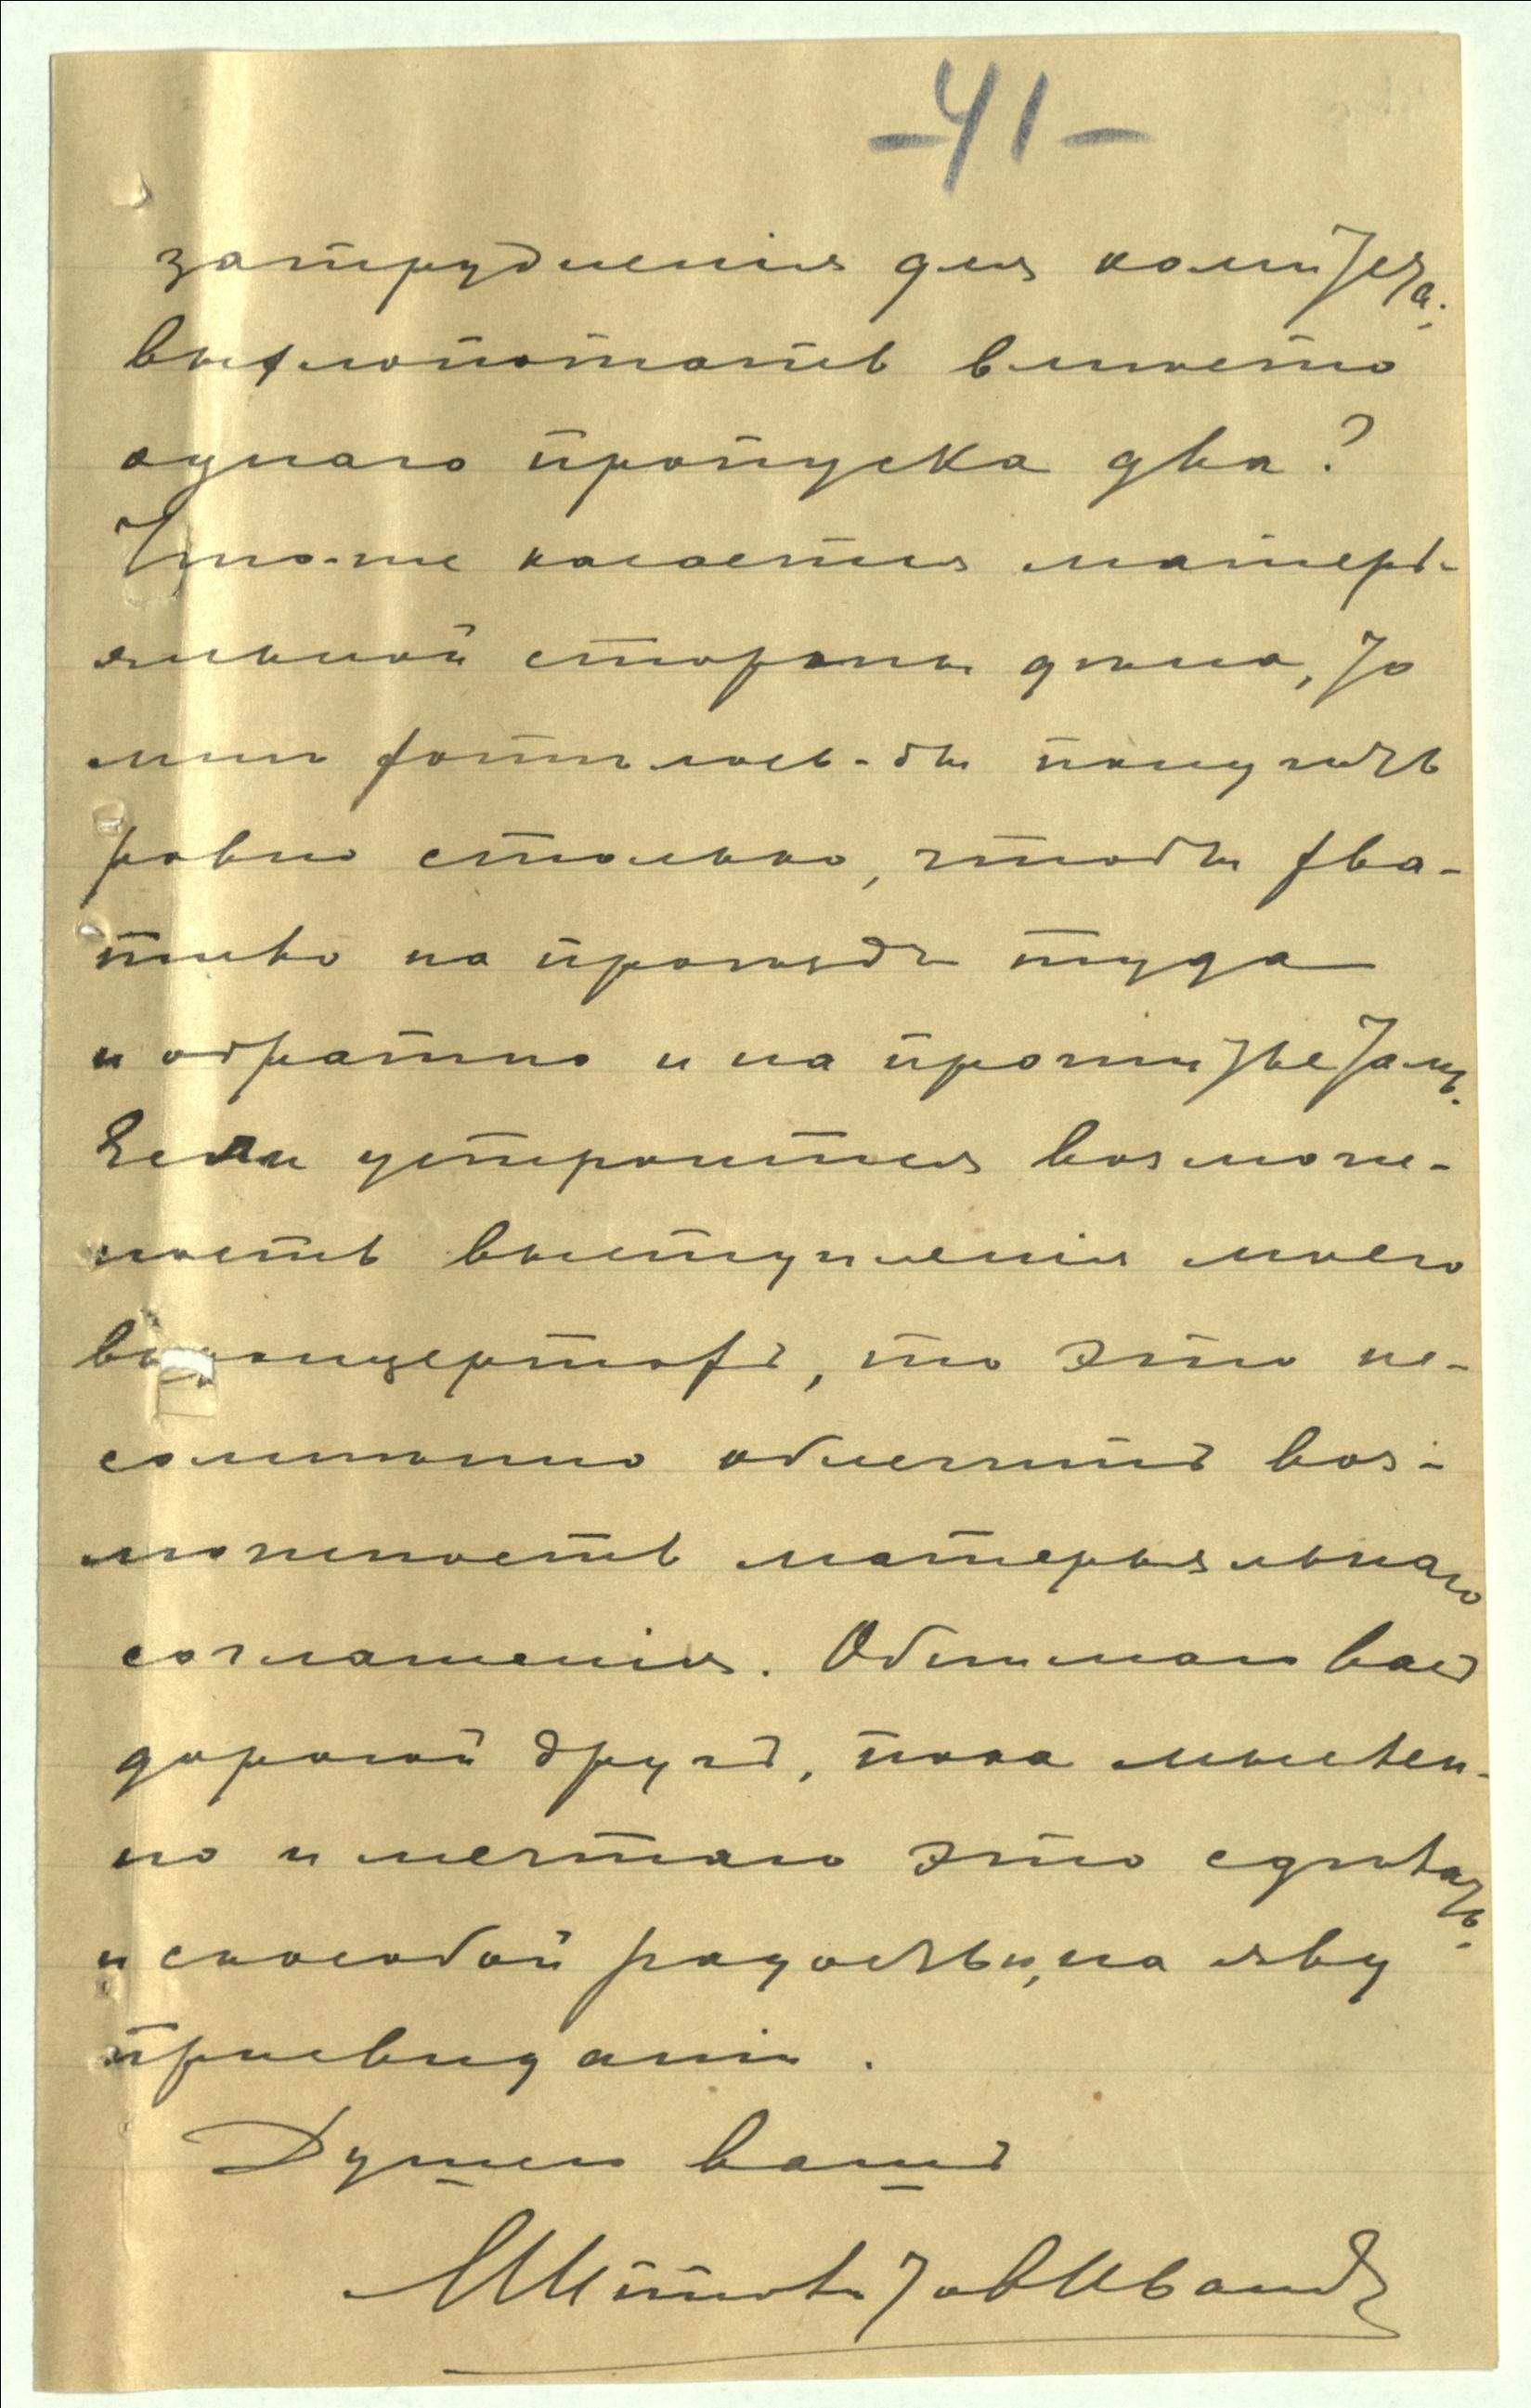 -41-
затрудненія для комитета
выхлопотать вместо
однаго пропуска два?
Что-же касается матерь-
яльной стороны дѣла, то
мнѣ хотѣлось-бы получить
ровно столько, чтобы хва-
тило на проѣздъ туда
и обратно и на прожитье там.
Если устроится возмож-
ность выступленія моего
въ концертахъ, то это не-
сомнѣнно облегчитъ воз-
можность матерьяльнаго
соглашенія. Обнимаю васъ
дорогой другъ, пока мыслен-
но и мечтаю это сдѣлать
и с особой радостью, на яву
при свиданіи.
Душею вашъ